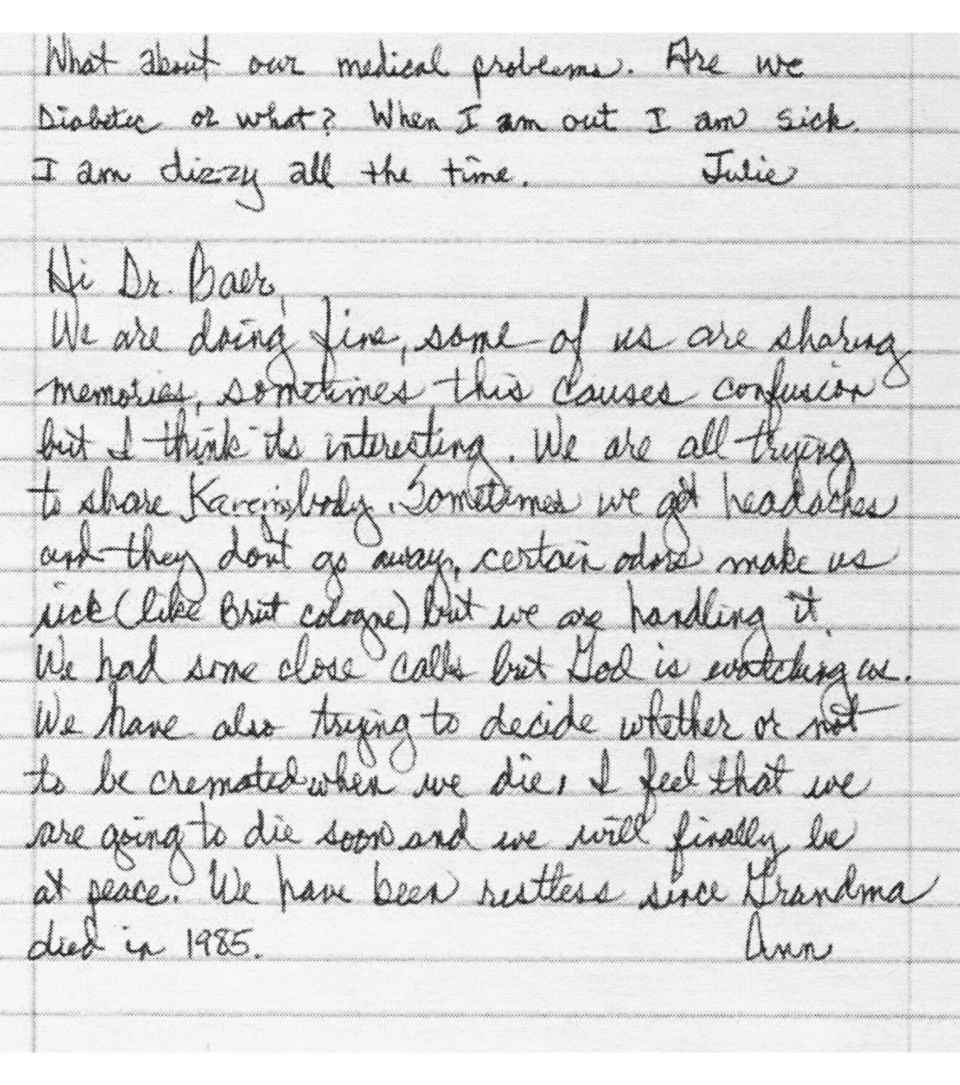 What about our medical problems. Are we
Diabetic or what? When I am out I am sick.
I am dizzy all the time. Julie
Hi Dr. Baer,
We are doing fine, some of us are sharing
memories, sometimes this causes confusion
but I think its interesting. We are all trying
to share Karen's body. Sometimes we get headaches
and they don't go away, certain odors make us
sick (like Brut cologne) but we are handling it.
We had some close calls but God is watching us.
We have also trying to decide whether or not
to be cremated when we die, I feel that we
are going to die soon and we will finally be
at peace. We have been restless since Grandma
died in 1985. Ann